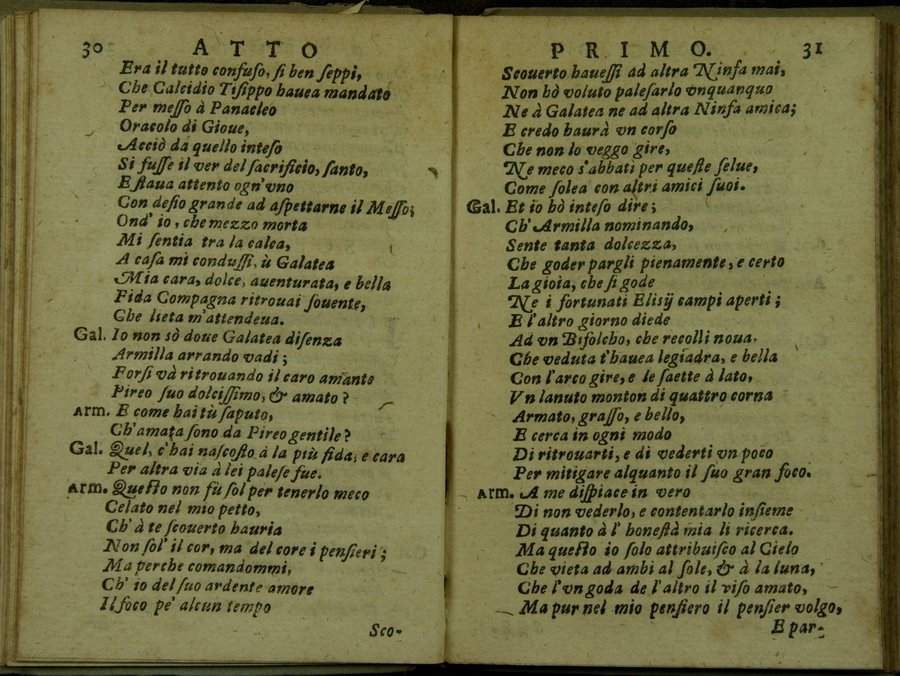 30 ATTO
Era il tutto confuso, si ben seppi,
Che Calcidio Tisippo hauea mandato
Per messo à Panacleo
Oracolo di Gioue,
Acciò da quello inteso
Si fusse il ver del sacrificio, santo,
E staua attento ogn'vno
Con desio grande ad aspettarne il Messo;
Ond' io, che mezzo morta
Mi sentia tra la calca,
A casa mi condussi, ù Galatea
Mia cara, dolce, auenturata, e bella
Fida Compagna ritrouai souente,
Che lieta m'attendeua.
Gal. Io non sò doue Galatea disenza
Armilla arrando vadi;
Forsi và ritrouando il caro amante
Pireo suo dolcissimo, & amato?
Arm. E come hai tù saputo,
Ch'amata sono da Pireo gentile?
Gal. Quel, c'hai nascosto à la più fida, e cara
Per altra via à lei palese fue.
Arm. Questo non fù sol per tenerlo meco
Celato nel mio petto,
Ch' à te scouerto hauria
Non sol' il cor, ma del core i pensieri;
Ma perche comandommi,
Ch' io del suo ardente amore
Il foco pe' alcun tempo
Sco-
PRIMO. 31
Scouerto hauessi ad altra Ninfa mai,
Non hò voluto palesarlo vnquanquo
Ne à Galatea ne ad altra Ninfa amica;
E credo haurà vn corso
Che non lo veggo gire,
Ne meco s'abbati per queste selue,
Come solea con altri amici suoi.
Gal. Et io hò inteso dire;
Ch' Armilla nominando,
Sente tanta dolcezza,
Che goder pargli pienamente, e certo
La gioia, che si gode
Ne i fortunati Elisij campi aperti;
E l'altro giorno diede
Ad vn Bifolcho, che recolli noua,
Che veduta t'hauea legiadra, e bella
Con l'arco gire, e le saette à lato,
Vn lanuto monton di quattro corna
Armato, grasso, e bello,
E cerca in ogni modo
Di ritrouarti, e di vederti vn poco
Per mitigare alquanto il suo gran foco.
Arm. A me dispiace in vero
Di non vederlo, e contentarlo insieme
Di quanto à l' honestà mia li ricerca.
Ma questo io solo attribuisco al Cielo
Che vieta ad ambi al sole, & à la luna,
Che l'vn goda de l'altro il viso amato,
Ma pur nel mio pensiero il pensier volgo,
E par-